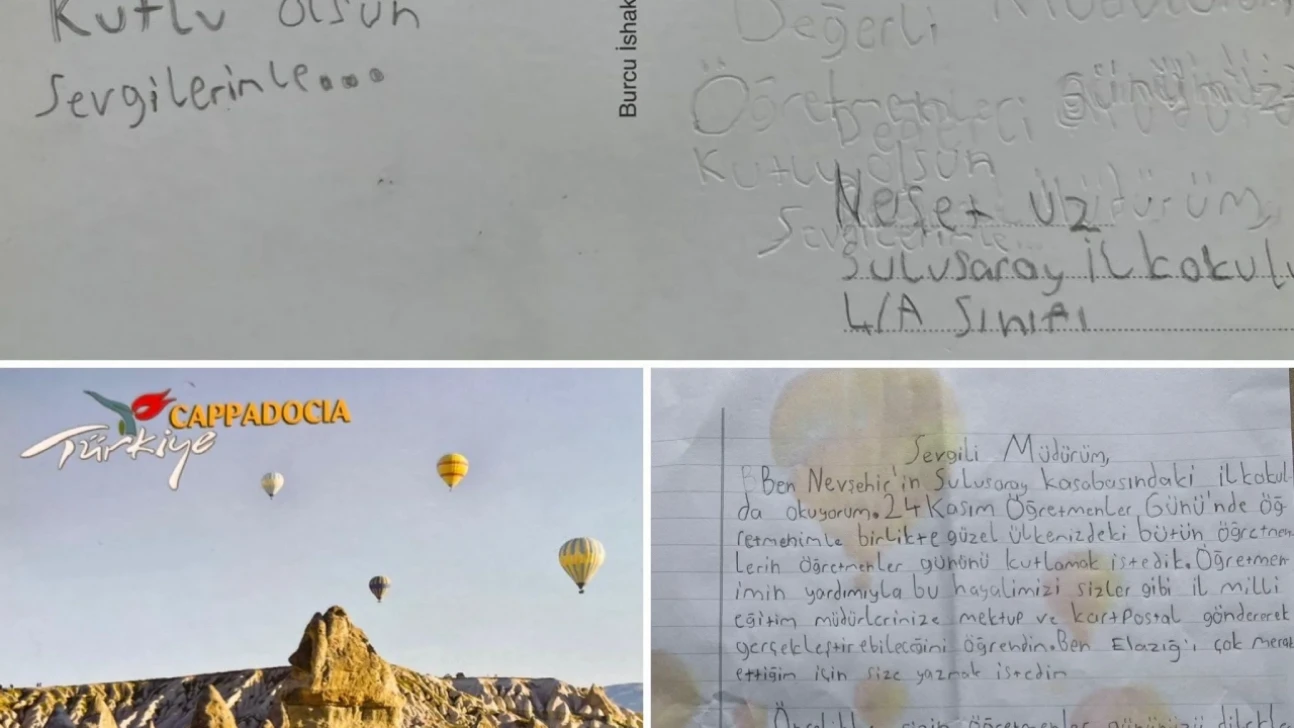 Kutlu olsun
Sevgilerinle...
Burcu İshak
Değerli
Öğretmenleri Gününüz
Kutlu olsun
Neşet Uz
Sulusaray İlkokulu
4/A Sınıfı
CAPPADOCIA
Türkiye
Sevgili Müdürüm,
Ben Nevşehir'in Sulusaray kasabasındaki ilkokul-
da okuyorum. 24 Kasım Öğretmenler Günü'nde öğ-
retmenimle birlikte güzel ülkenizdeki bütün öğretmen
lerin öğretmenler gününü kutlamak istedik. Öğretmen
imin yardımıyla bu hayalimizi sizler gibi il milli
eğitim müdürlerinize mektup ve kartpostal göndererek
gerçekleştirebileceğini öğrendin. Ben Elazığ'ı çok merak
ettiğin için size yazmak istedin